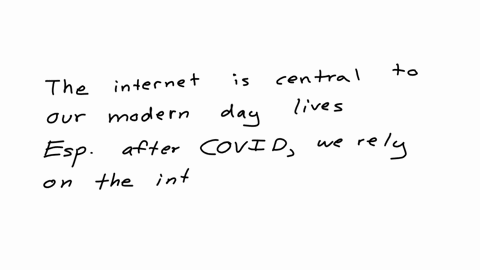 The internet is central to
our modern day lives
Esp. after COVID, we rely
on the int